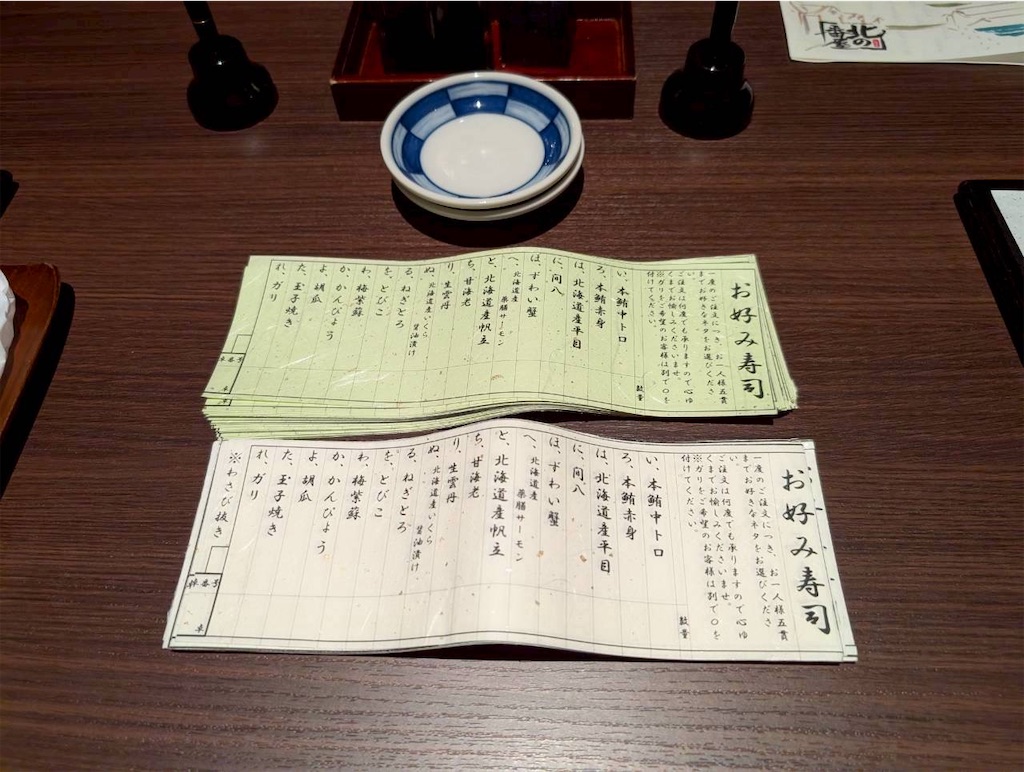 北の
お好み寿司
一度のご注文につき、お一人様五貫
までお好きなネタをお選びくださ
い。
ご注文は何度でも承りますので心ゆ
くまでお愉しみくださいませ。
※ガリをご希望のお客様は別で○を
付けてください。
数量
い、本鮪中トロ
ろ、本鮪赤身
は、北海道産平目
に、間八
ほ、ずわい蟹
へ、北海道産 薬膳サーモン
と、北海道産帆立
ち、甘海老
り、生雲丹
ぬ、北海道産いくら 醤油漬け
る、ねぎとろ
を、とびこ
わ、梅紫蘇
か、かんぴょう
よ、胡瓜
た、玉子焼き
れ、ガリ
卓番号
卓
お好み寿司
一度のご注文につき、お一人様五貫
までお好きなネタをお選びくださ
い。
ご注文は何度でも承りますので心ゆ
くまでお愉しみくださいませ。
※ガリをご希望のお客様は別で○を
付けてください。
数量
い、本鮪中トロ
ろ、本鮪赤身
は、北海道産平目
に、間八
ほ、ずわい蟹
へ、北海道産 薬膳サーモン
と、北海道産帆立
ち、甘海老
り、生雲丹
ぬ、北海道産いくら 醤油漬け
る、ねぎとろ
を、とびこ
わ、梅紫蘇
か、かんぴょう
よ、胡瓜
た、玉子焼き
れ、ガリ
※わさび抜き
卓番号
卓